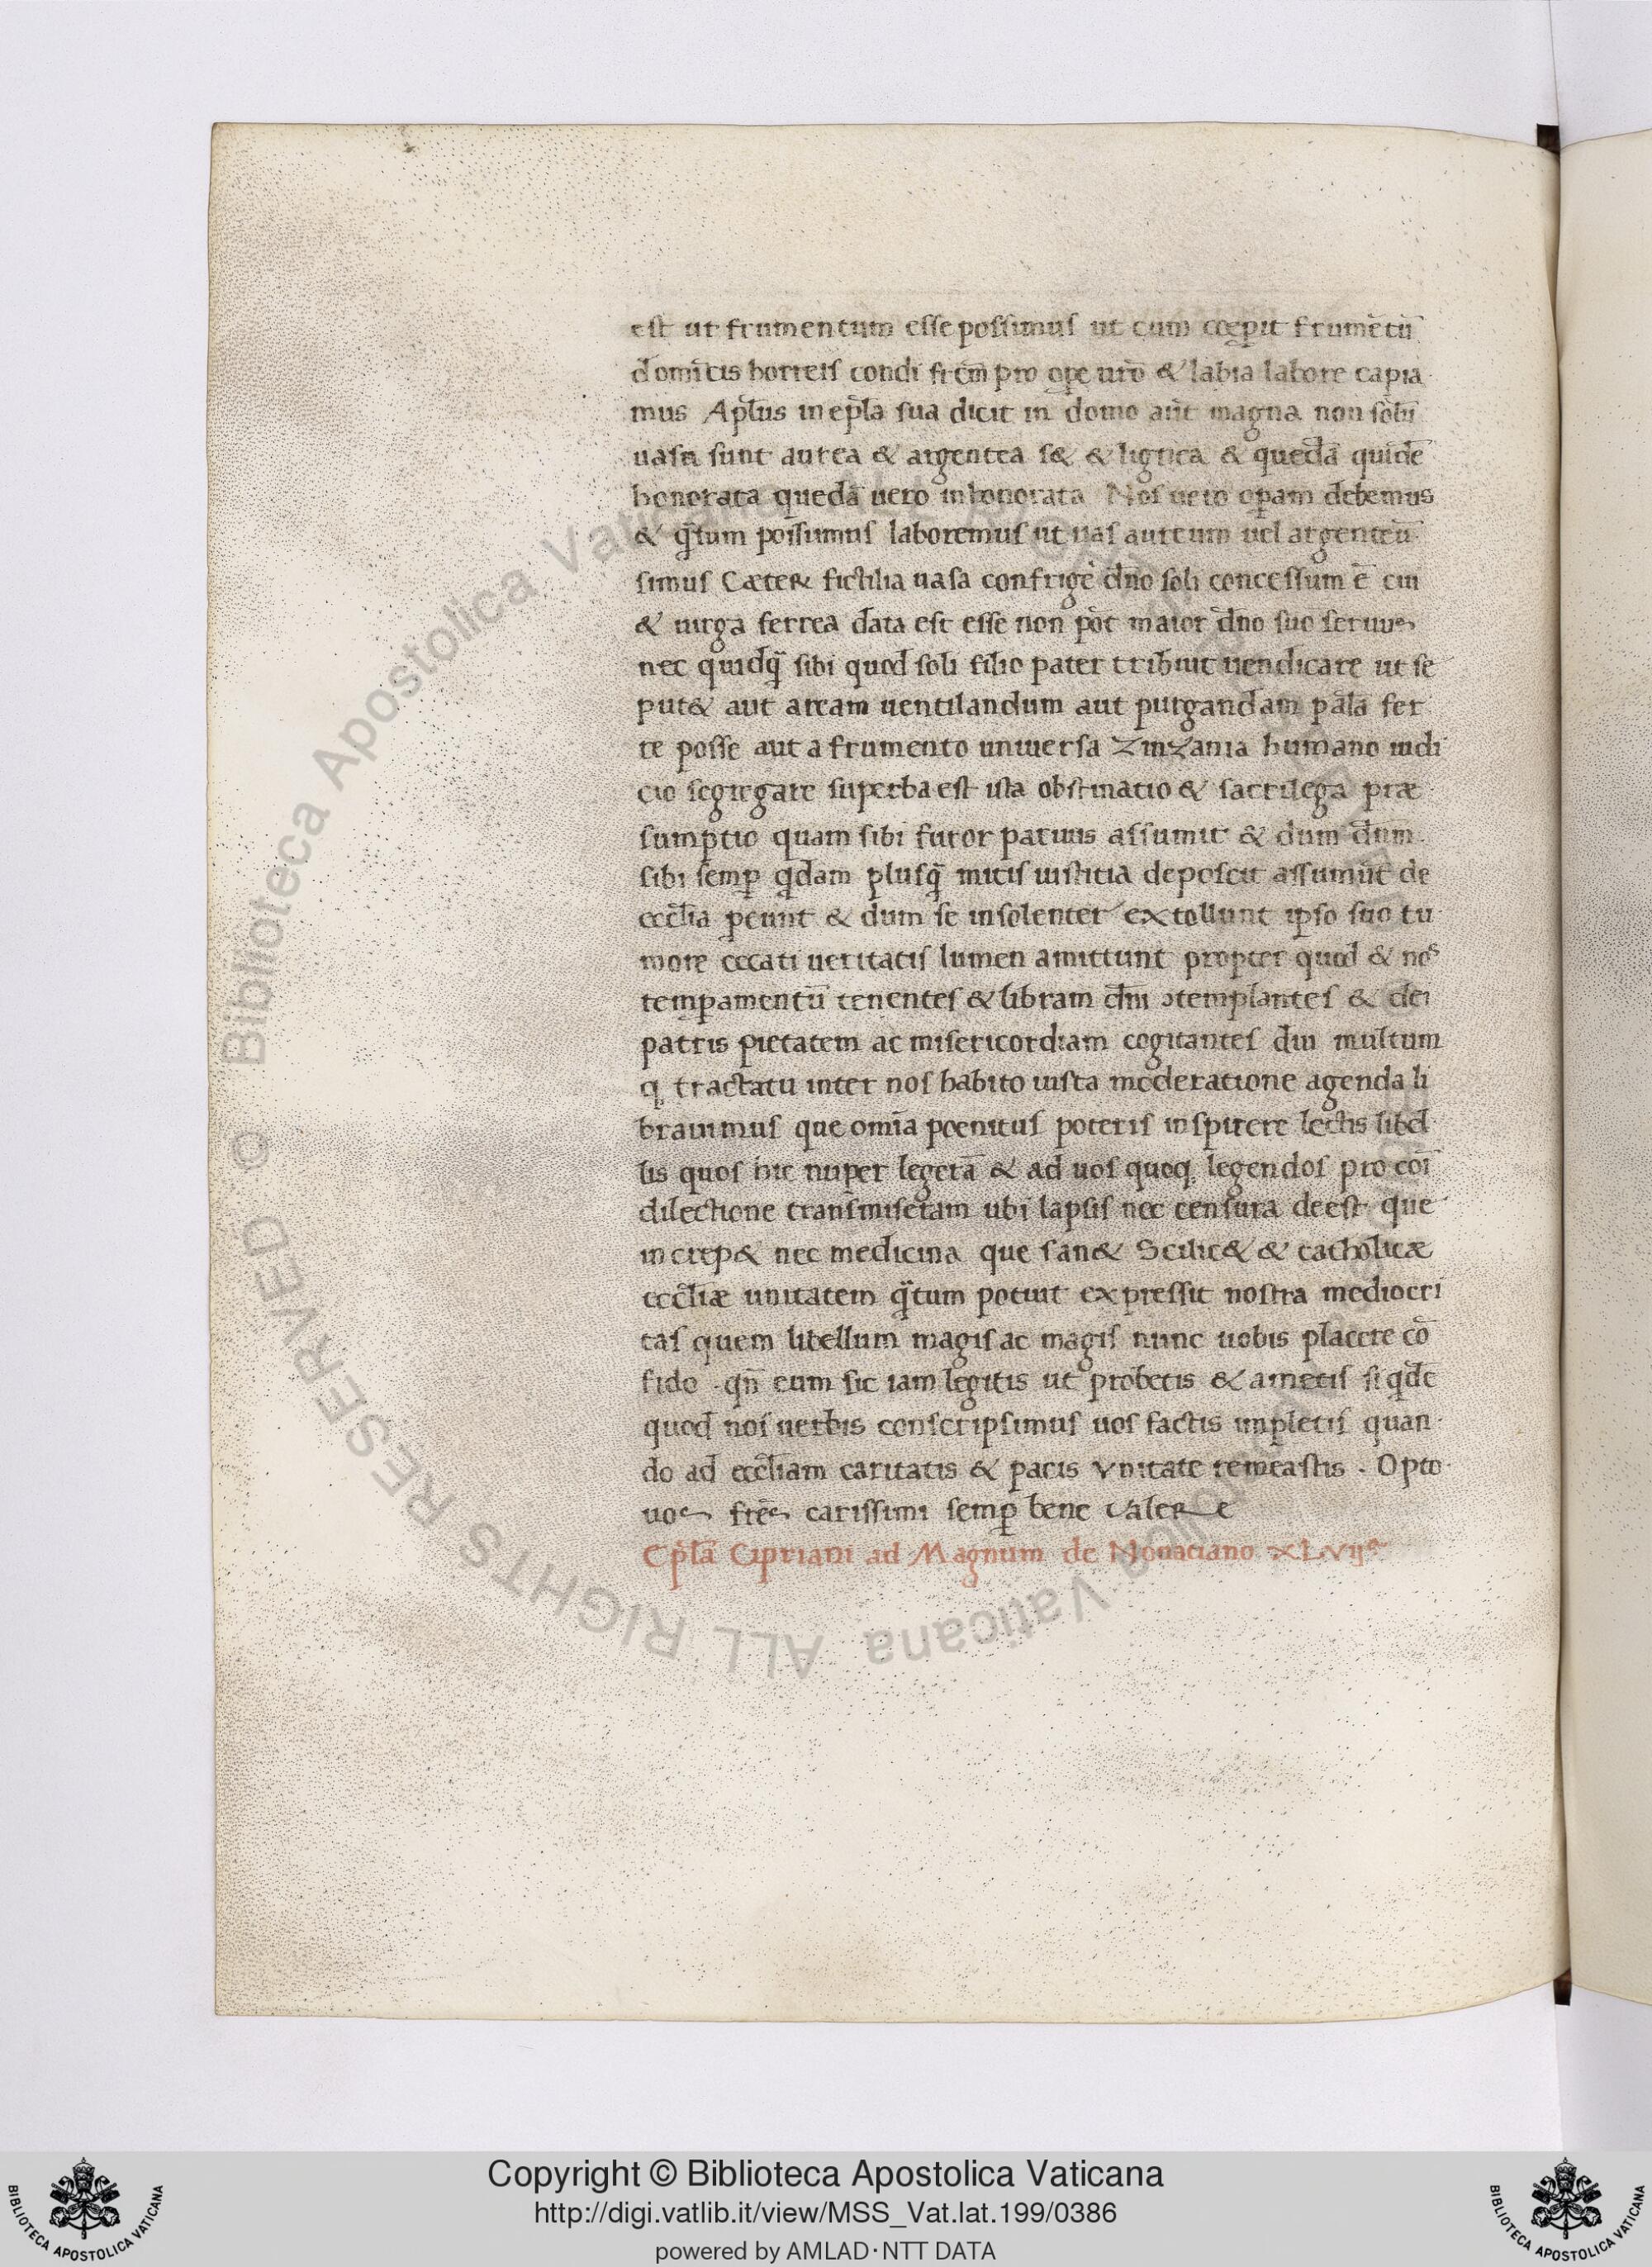 est ut frumentum esse possimus ut cum cœpit frumẽtũ
domĩcis horreis condi frc̃m pro ope ur̃o & labia labore capia
mus Apl̃us in epl̃a sua dicit in domo aũt magna non sol̃ũ
uasa sunt aurea & argentea s& & lignea & quedã quidẽ
honorata quedã uero inhonorata Nos uero op̃am debemus
& q̃tum possumus laboremus ut uas aureum uel argenteũ
simus Cæterꝝ fictilia uasa confrigẽ dño soli concessum ẽ cui
& uirga ferrea data est esse non pot̃ maior dño suo seruus
nec quidq̃ sibi quod soli filio pater tribuit uendicare ut se
put& aut aream uentilandum aut purgandam palã fer
re posse aut a frumento uniuersa zinzania humano iudi
cio segregare superba est ista obstinatio & sacrilega præ
sumptio quam sibi furor prauus assumit & dum dum
sibi semꝑ q̃dam plusq̃ mitis iustitia deposcit assumũt de
eccl̃ia ꝑeunt & dum se insolenter extollunt ipso suo tu
more cecati ueritatis lumen amittunt propter quod & nos
temꝑamentũ tenentes & libram dñi ꝯtemplantes & dei
patris pietatem ac misericordiam cogitantes diu multum
q; tractatu inter nos habito iusta moderatione agenda li
brauimus que om̃ia poenitus poteris inspirere lectis libel
lis quos hic nuper legerã & ad uos quoq; legendos pro cõi
dilectione transmiseram ubi lapsis nec censura deest que
increp& nec medicina que san& Scilic& & catholicæ
eccl̃iæ unitatem q̃tum potuit expressit nostra mediocri
tas quem libellum magis ac magis nunc uobis placere cõ
fido qñ eum sic iam legitis ut probetis & ametis siq̃dẽ
quod nos uerbis conscripsimus uos factis impletis quan
do ad eccl̃iam caritatis & pacis vnitate remeastis . Opto
uos fr̃es carissimi semꝑ bene valeRe
Epl̃ã Cipriani ad Magnum de Nouaciano XLvijª
Copyright © Biblioteca Apostolica Vaticana
http://digi.vatlib.it/view/MSS_Vat.lat.199/0386
powered by AMLAD·NTT DATA
BIBLIOTECA APOSTOLICA VATICANA
BIBLIOTECA APOSTOLICA VATICANA
© Biblioteca Apostolica Vaticana ALL RIGHTS RESERVED